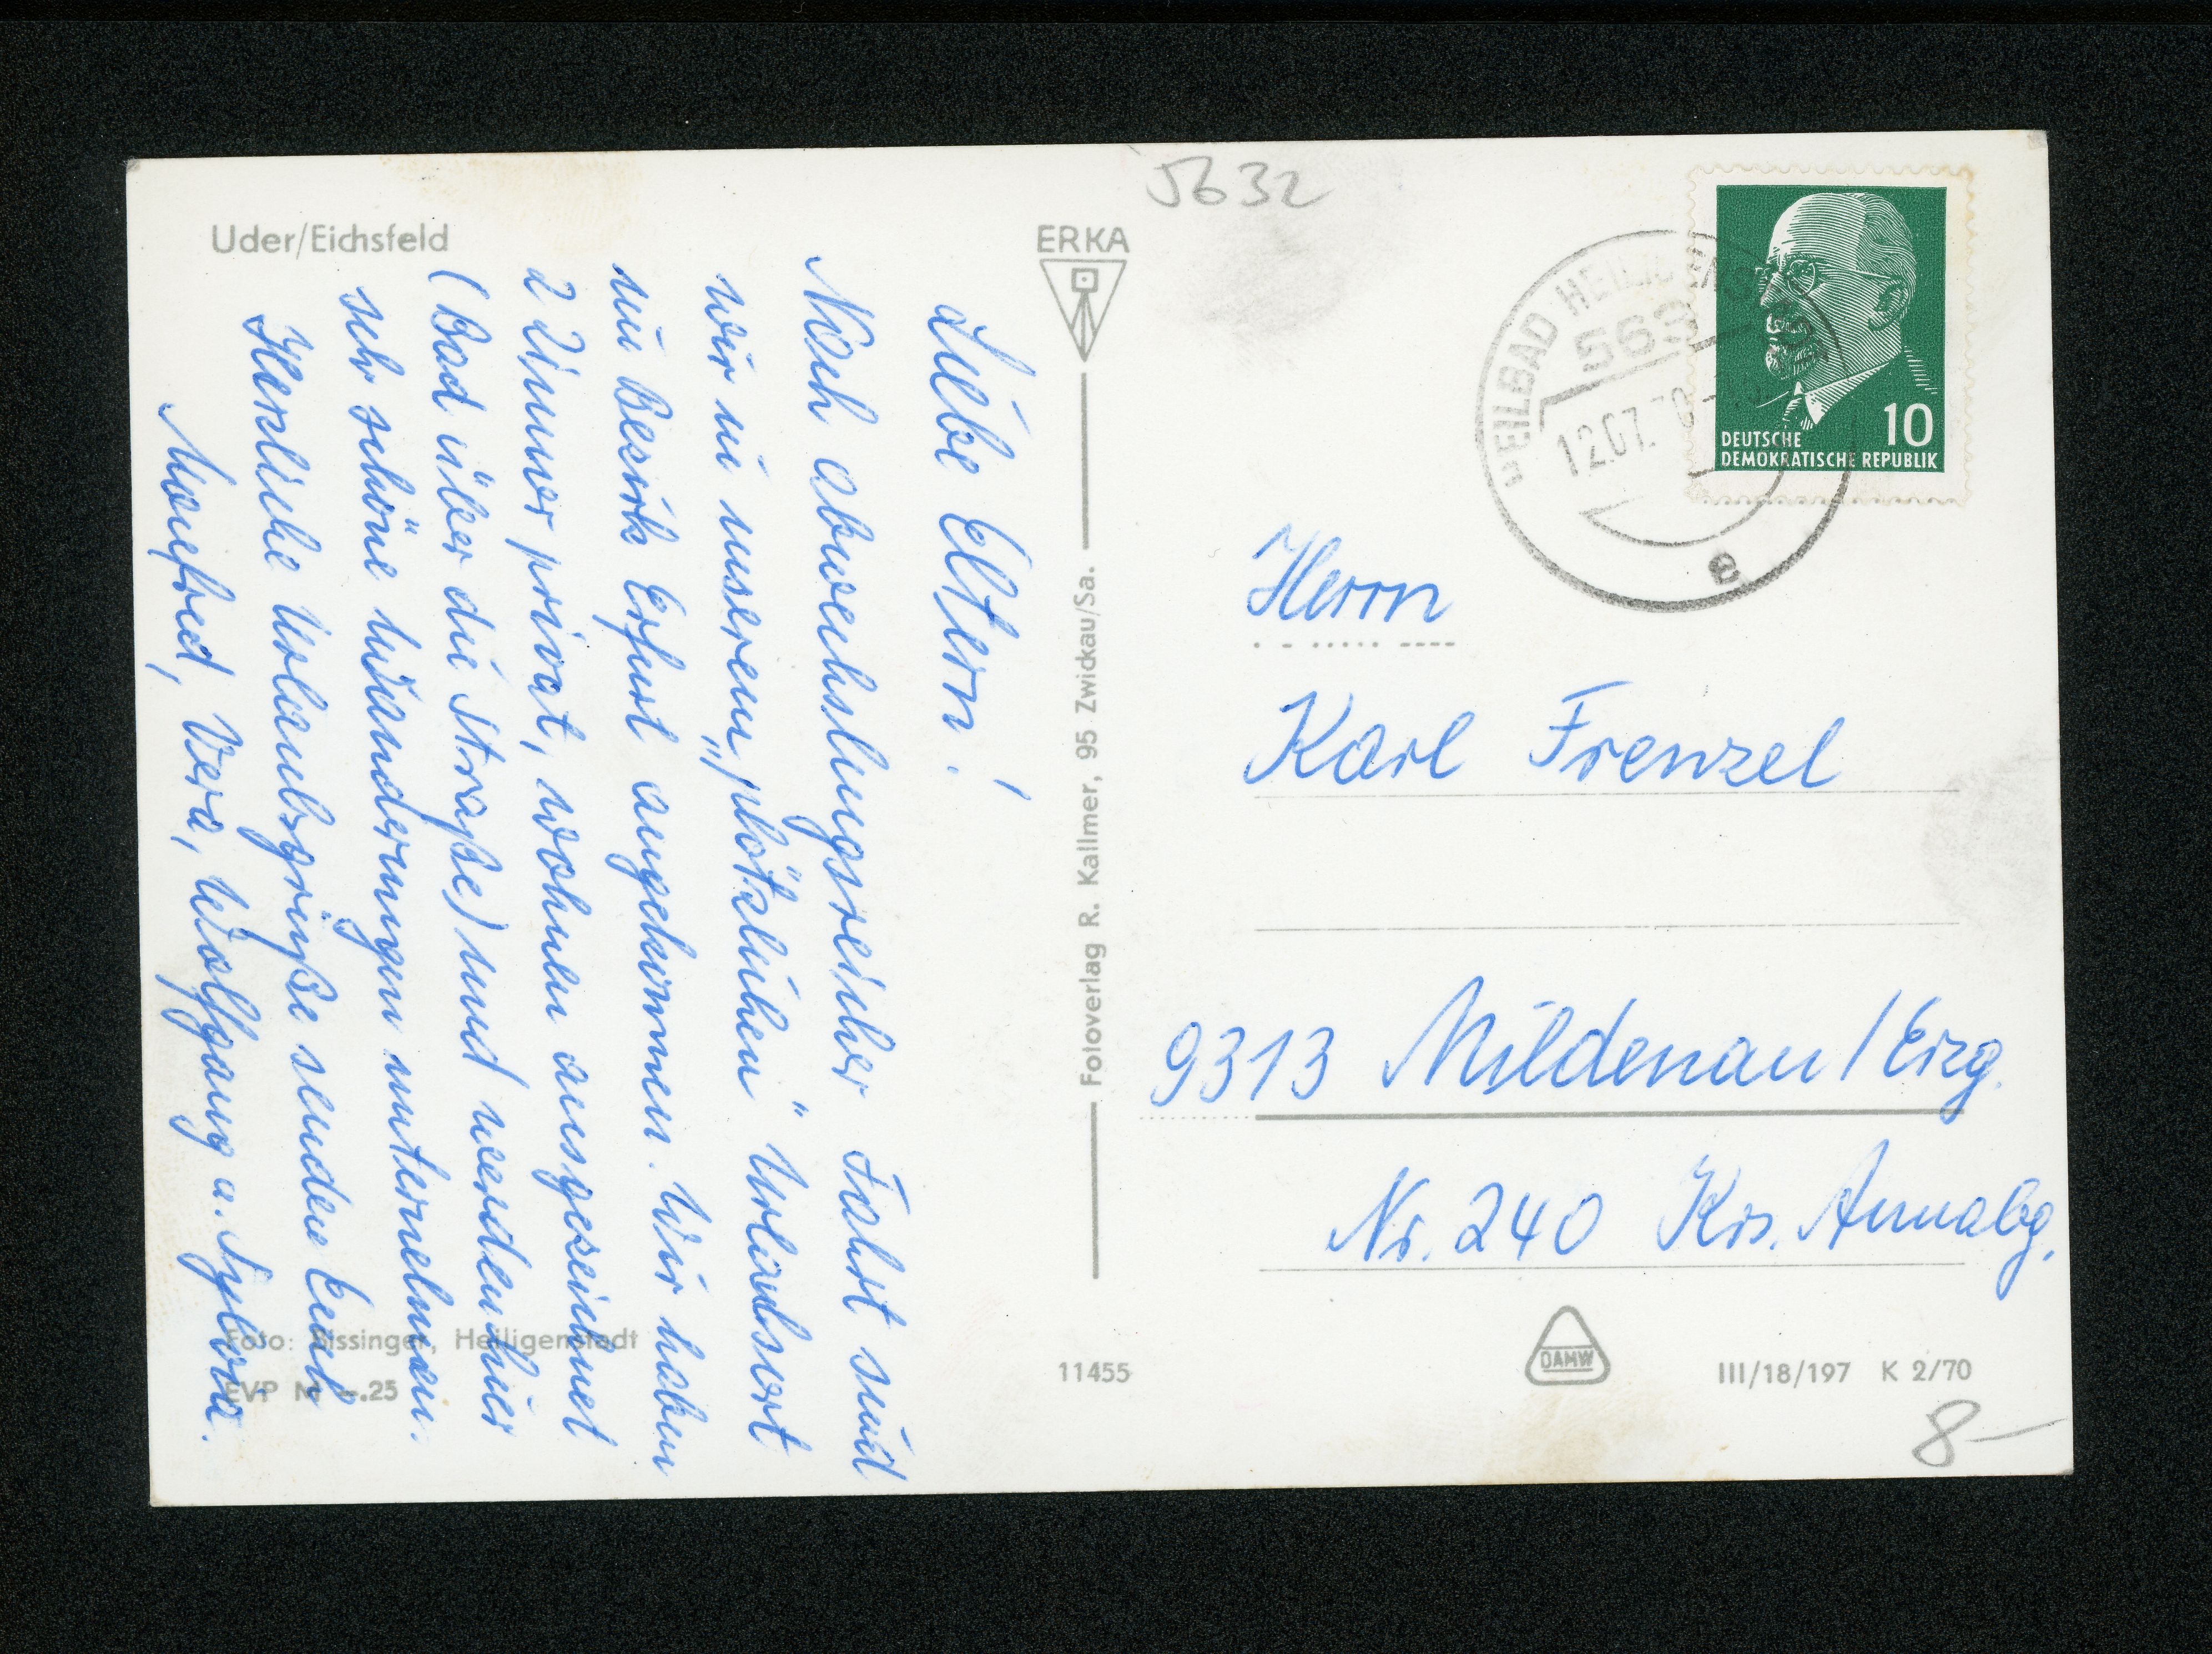 Uder/Eichsfeld
Liebe Eltern!
Nach abwechslungsreicher Fahrt sind
wir in unserem „plötzlichen" Urlaubsort
im Bezirk Erfurt angekommen. Wir haben
2 Zimmer privat, wohnen ausgezeichnet
(Bad über die Straße) und werden hier
sehr schöne Wanderungen unternehmen.
Herzliche Urlaubsgrüße senden Euch
Manfred, Vera, Wolfgang u. Sylvia.
Foto: Bissinger, Heiligenstadt
EVP M -.25
ERKA
Fotoverlag R. Kallmer, 95 Zwickau/Sa.
11455
5632
HEILBAD HEILIGENSTADT
563
12.07.70
e
10
DEUTSCHE
DEMOKRATISCHE REPUBLIK
Herrn
Karl Frenzel
9313 Mildenau/Erzg.
Nr. 240 Krs. Annabg.
DAMW
III/18/197 K 2/70
8-